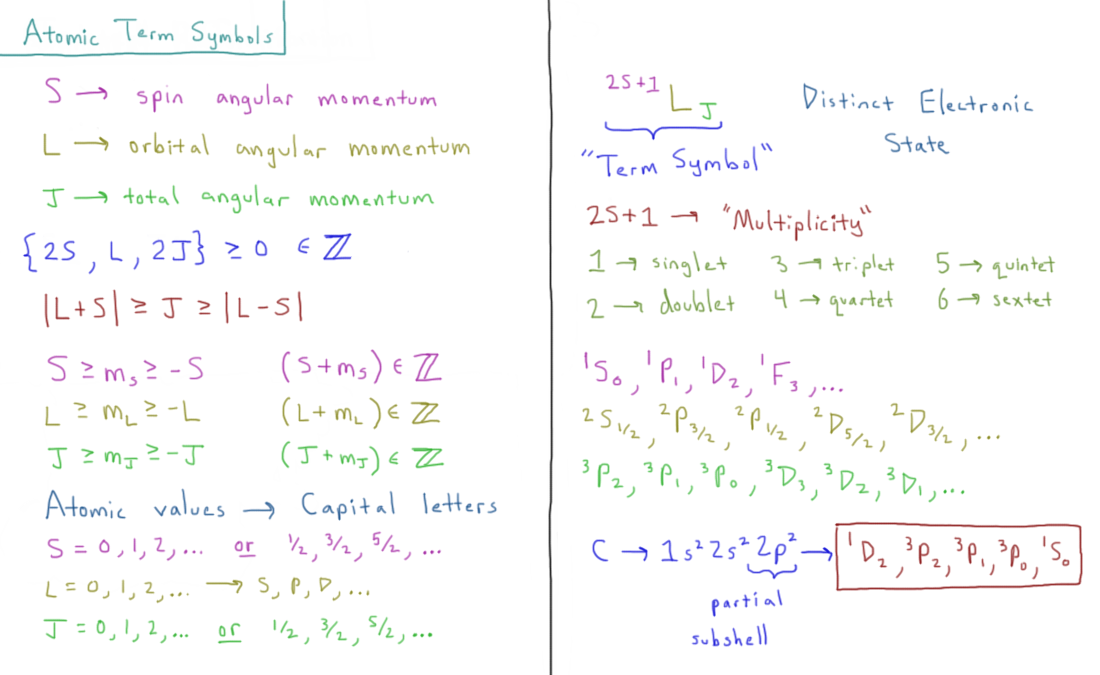 Atomic Term Symbols
S → spin angular momentum
L → orbital angular momentum
J → total angular momentum
{2S, L, 2J} ≥ 0 ∈ ℤ
|L+S| ≥ J ≥ |L-S|
S ≥ mₛ ≥ -S (S+mₛ) ∈ ℤ
L ≥ m_L ≥ -L (L+m_L) ∈ ℤ
J ≥ m_J ≥ -J (J+m_J) ∈ ℤ
Atomic values → Capital letters
S = 0, 1, 2, ... or 1/2, 3/2, 5/2, ...
L = 0, 1, 2, ... → S, P, D, ...
J = 0, 1, 2, ... or 1/2, 3/2, 5/2, ...
²ˢ⁺¹L_J Distinct Electronic
State
"Term Symbol"
2S+1 → "Multiplicity"
1 → singlet 3 → triplet 5 → quintet
2 → doublet 4 → quartet 6 → sextet
¹S₀, ¹P₁, ¹D₂, ¹F₃, ...
²S₁/₂, ²P₃/₂, ²P₁/₂, ²D₅/₂, ²D₃/₂, ...
³P₂, ³P₁, ³P₀, ³D₃, ³D₂, ³D₁, ...
C → 1s² 2s² 2p² → ¹D₂, ³P₂, ³P₁, ³P₀, ¹S₀
partial
subshell